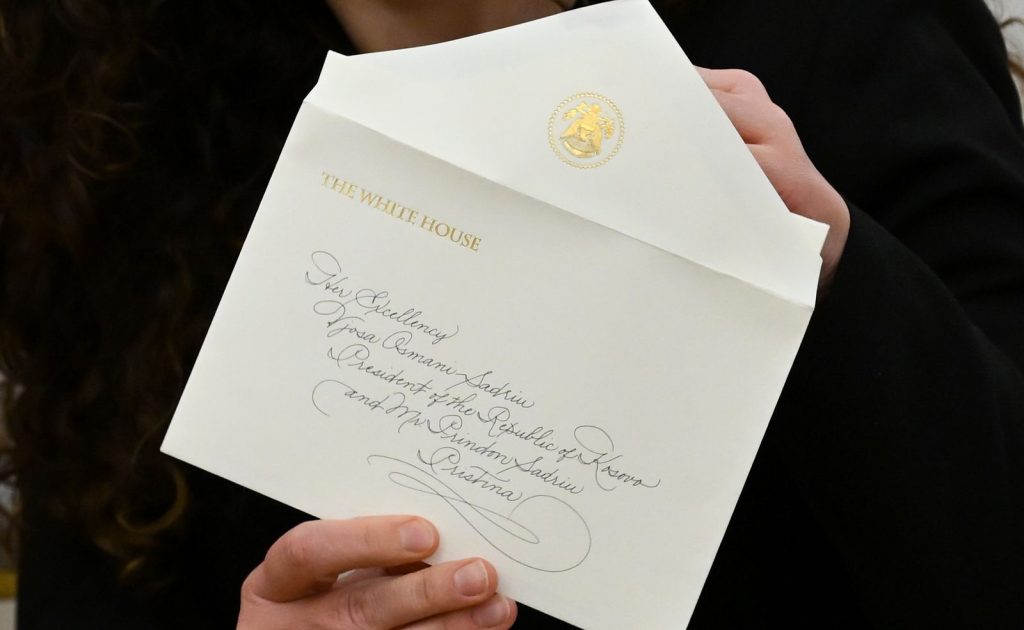 THE WHITE HOUSE
Her Excellency
Vjosa Osmani-Sadriu
President of the Republic of Kosovo
and Mr. Prindon Sadriu
Pristina